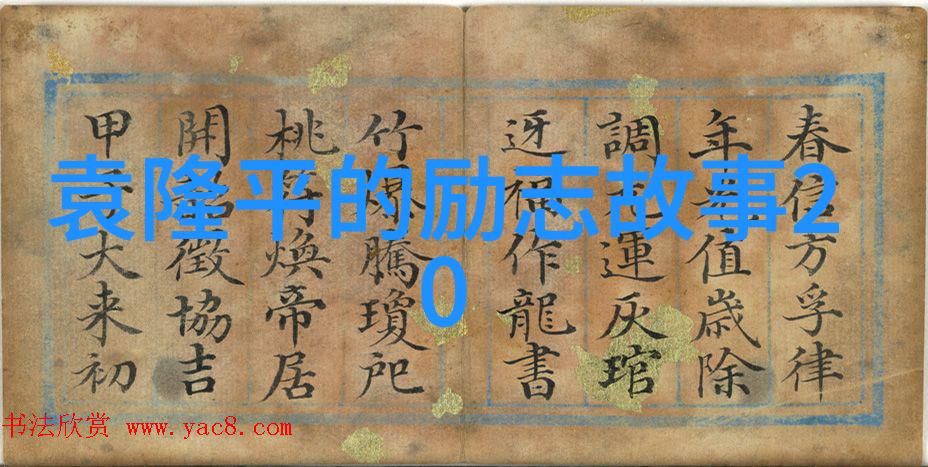 袁隆平的励志故事2
0
春信方孚律
年值歲除
調元運灰琯
迓福作龍書
竹爆騰瓊戺
桃符煥帝居
開韶徵協吉
甲大来初
书法欣赏 www.yac8.com